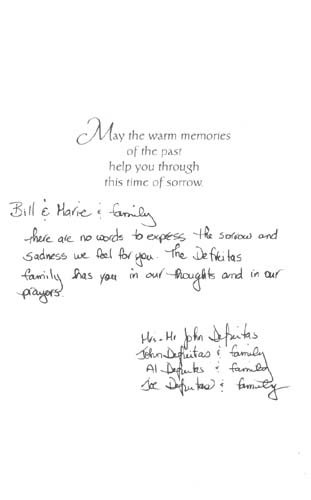 May the warm memories
of the past
help you through
this time of sorrow.
Bill & Marie & family
there are no words to express the sorrow and
sadness we feel for you. The Defreitas
family has you in our thoughts and in our
prayers.
Mrs - Mr John Defreitas
John Defreitas & family
Al Defreitas & family
Joe Defreitas & family